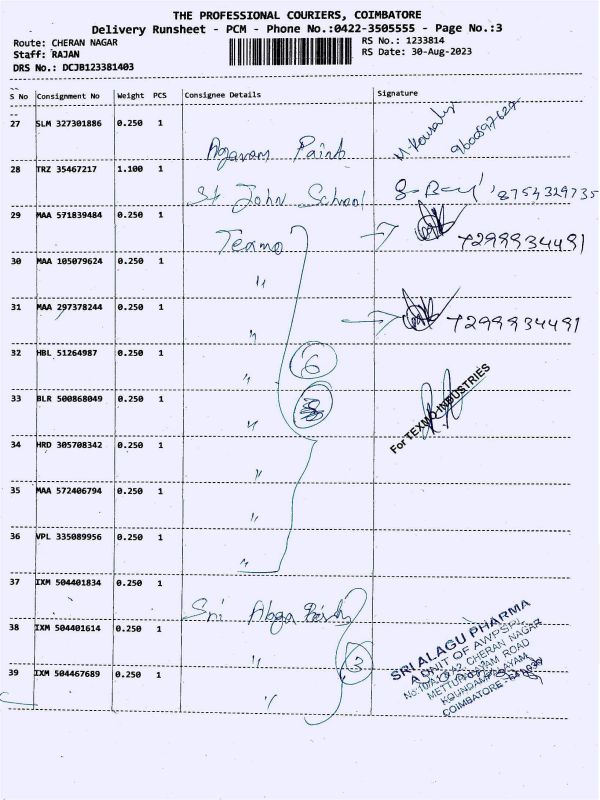 THE PROFESSIONAL COURIERS, COIMBATORE
Delivery Runsheet - PCM - Phone No.:0422-3505555 - Page No.:3
Route: CHERAN NAGAR
RS No.: 1233814
Staff: RAJAN
RS Date: 30-Aug-2023
DRS No.: DCJB123381403
S No Consignment No Weight PCS Consignee Details Signature
27 SLM 327301886 0.250 1 Paint
28 TRZ 35467217 1.100 1 St John School 8754329735
29 MAA 571839484 0.250 1 Texmo 7299934491
30 MAA 105079624 0.250 1 "
31 MAA 297378244 0.250 1 " 7299934491
32 HBL 51264987 0.250 1 " 6
33 BLR 500868049 0.250 1 " For TEXMO INDUSTRIES
34 HRD 305708342 0.250 1 "
35 MAA 572406794 0.250 1 "
36 VPL 335089956 0.250 1 "
37 IXM 504401834 0.250 1 Sri
38 IXM 504401614 0.250 1 " 3
39 IXM 504467689 0.250 1 "
SRI ALAGU PHARMA
A UNIT OF AWPSPL
CHERAN NAGAR
METTUPALAYAM ROAD
KOUNDAMPALAYAM
COIMBATORE